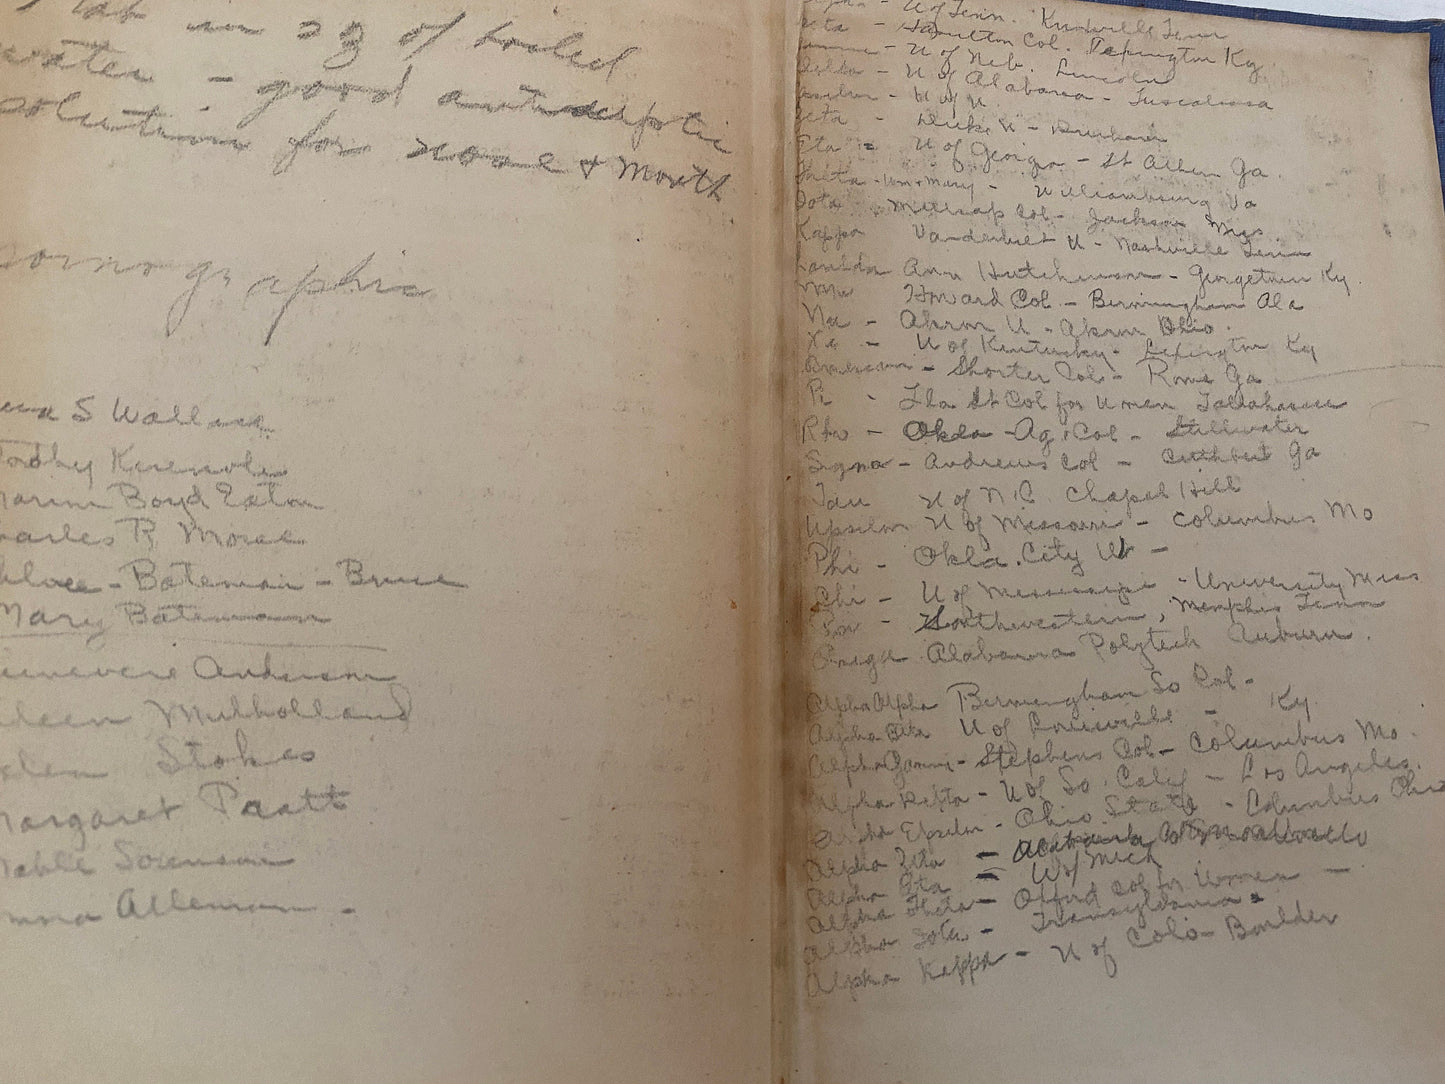 1 tab in 2 oz of boiled
water - good antiseptic
solution for nose & mouth.
pornographic
S Wallace
Dorothy
Marion Boyd Eaton
Charles R Morse
Chloee - Bateman - Bruce
Mary Bateman
Guinevere Anderson
Eileen Mulholland
Helen Stokes
Margaret Pratt
Mable Sorenson
Emma Alleman -
Alpha - U of Tenn. Knoxville Tenn
Beta - Hamilton Col. Lexington Ky.
Gamma - U of Neb. Lincoln
Delta - U of Alabama - Tuscaloosa
Epsilon - U of
Zeta - Duke U - Durham
Eta = U of Georgia - Ga.
Theta - Wm & Mary - Williamsburg Va
Iota Millsap Col - Jackson Miss.
Kappa Vanderbilt U - Nashville Tenn
Lambda Ann Hutchinson - Georgetown Ky.
Mu Howard Col - Birmingham Ala
Nu - Akron U - Akron Ohio.
Xi - U of Kentucky - Lexington Ky
Omicron - Shorter Col - Rome Ga
Pi - Fla St Col for Women Tallahassee
Rho - Okla - Ag. Col - Stillwater
Sigma - Andrews Col - Cuthbert Ga
Tau U of N.C. Chapel Hill
Upsilon U of Missouri - Columbus Mo
Phi - Okla. City U -
Chi - U of Mississippi - University Miss
Psi - Southwestern, Memphis Tenn
Omega Alabama Polytech Auburn.
Alpha Alpha Birmingham So Col -
Alpha Beta U of Louisville - Ky
Alpha Gamma - Stephens Col - Columbus Mo.
Alpha Delta - U of So. Calif - Los Angeles.
Alpha Epsilon - Ohio State - Columbus Ohio
Alpha Zeta -
Alpha Eta = U of Mich
Alpha Theta - Oxford Col for Women -
Alpha Iota - Transylvania.
Alpha Kappa - U of Colo - Boulder